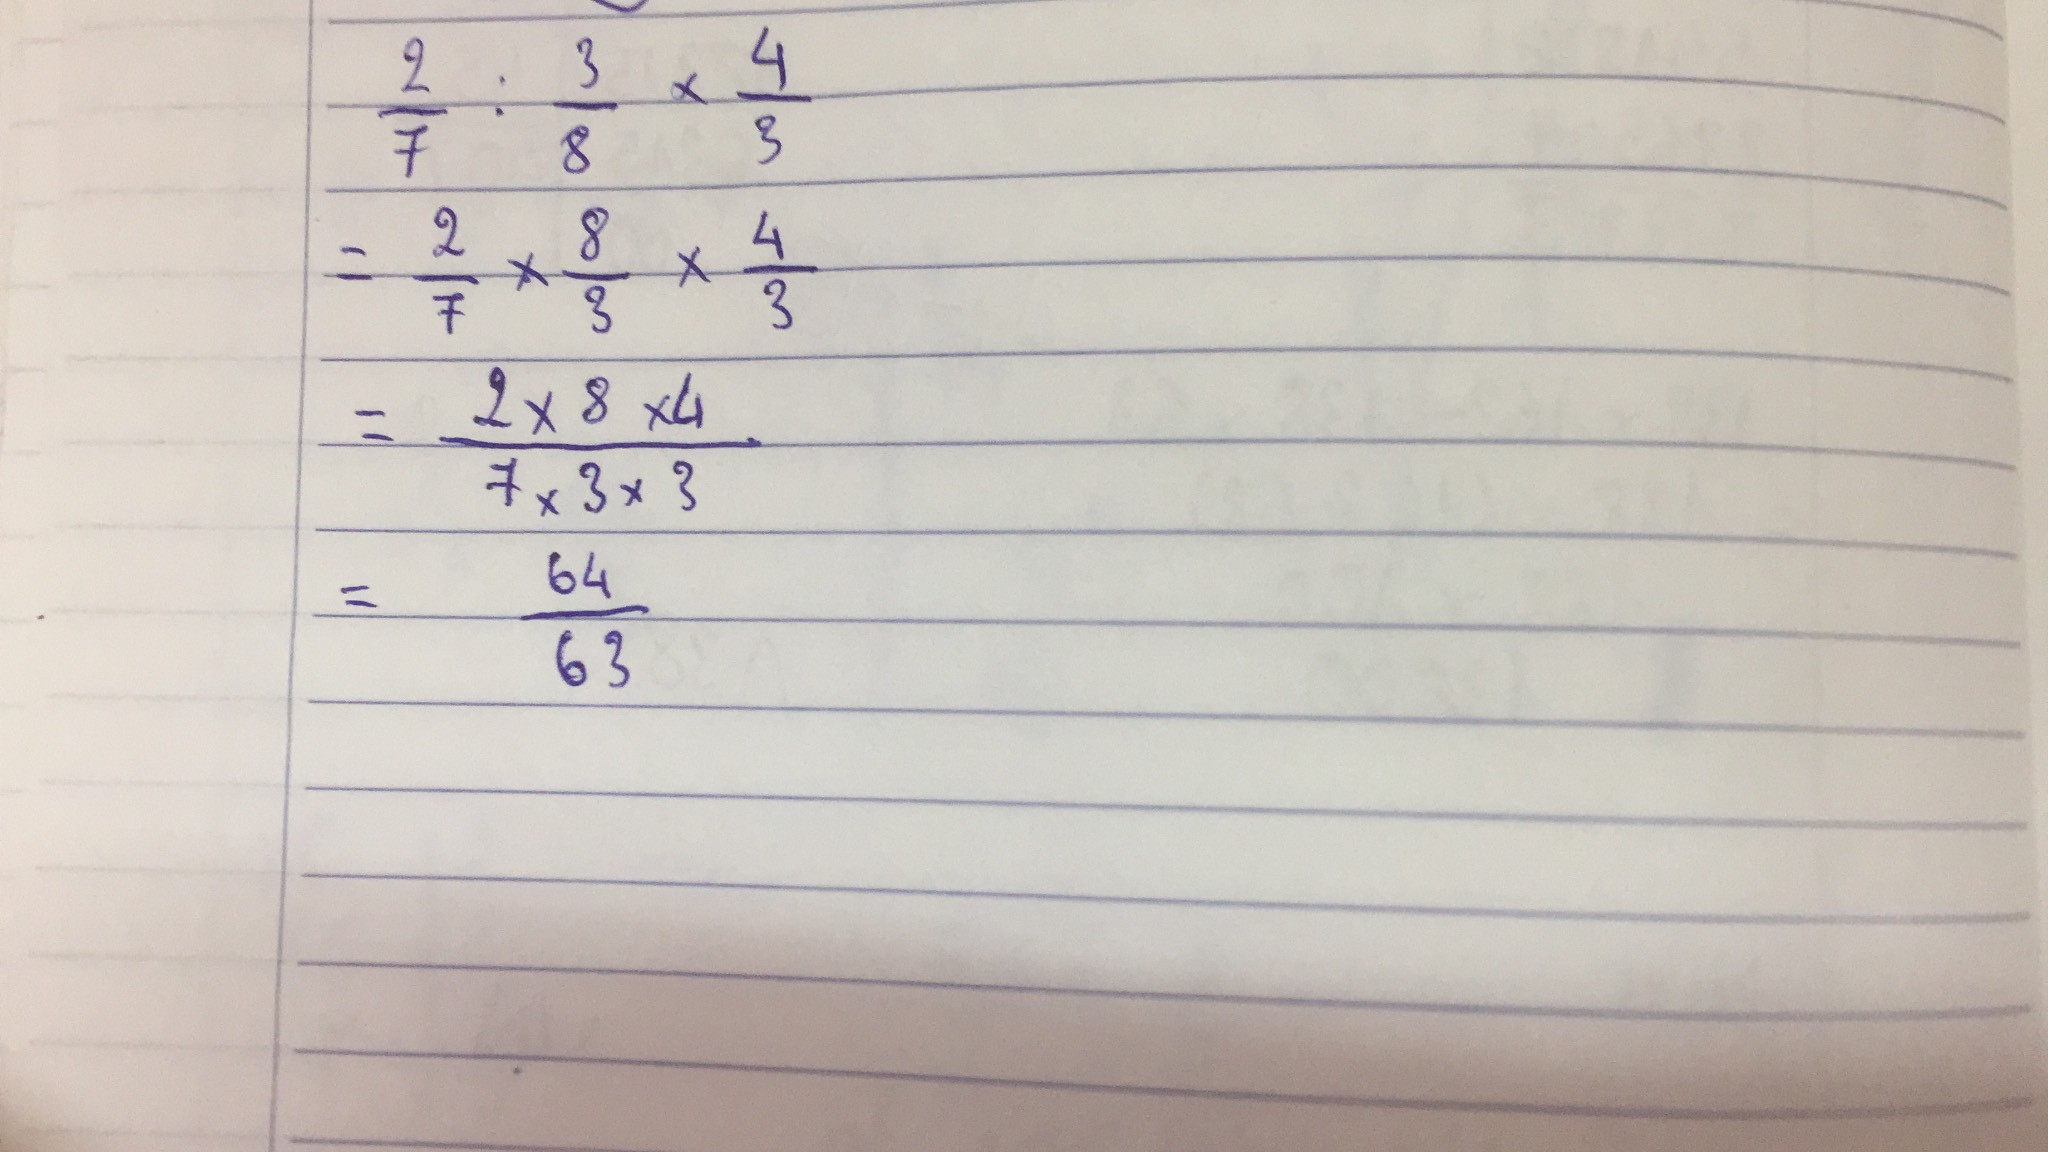 2/7 : 3/8 × 4/3
= 2/7 × 8/3 × 4/3
= (2 × 8 × 4)/(7 × 3 × 3)
= 64/63